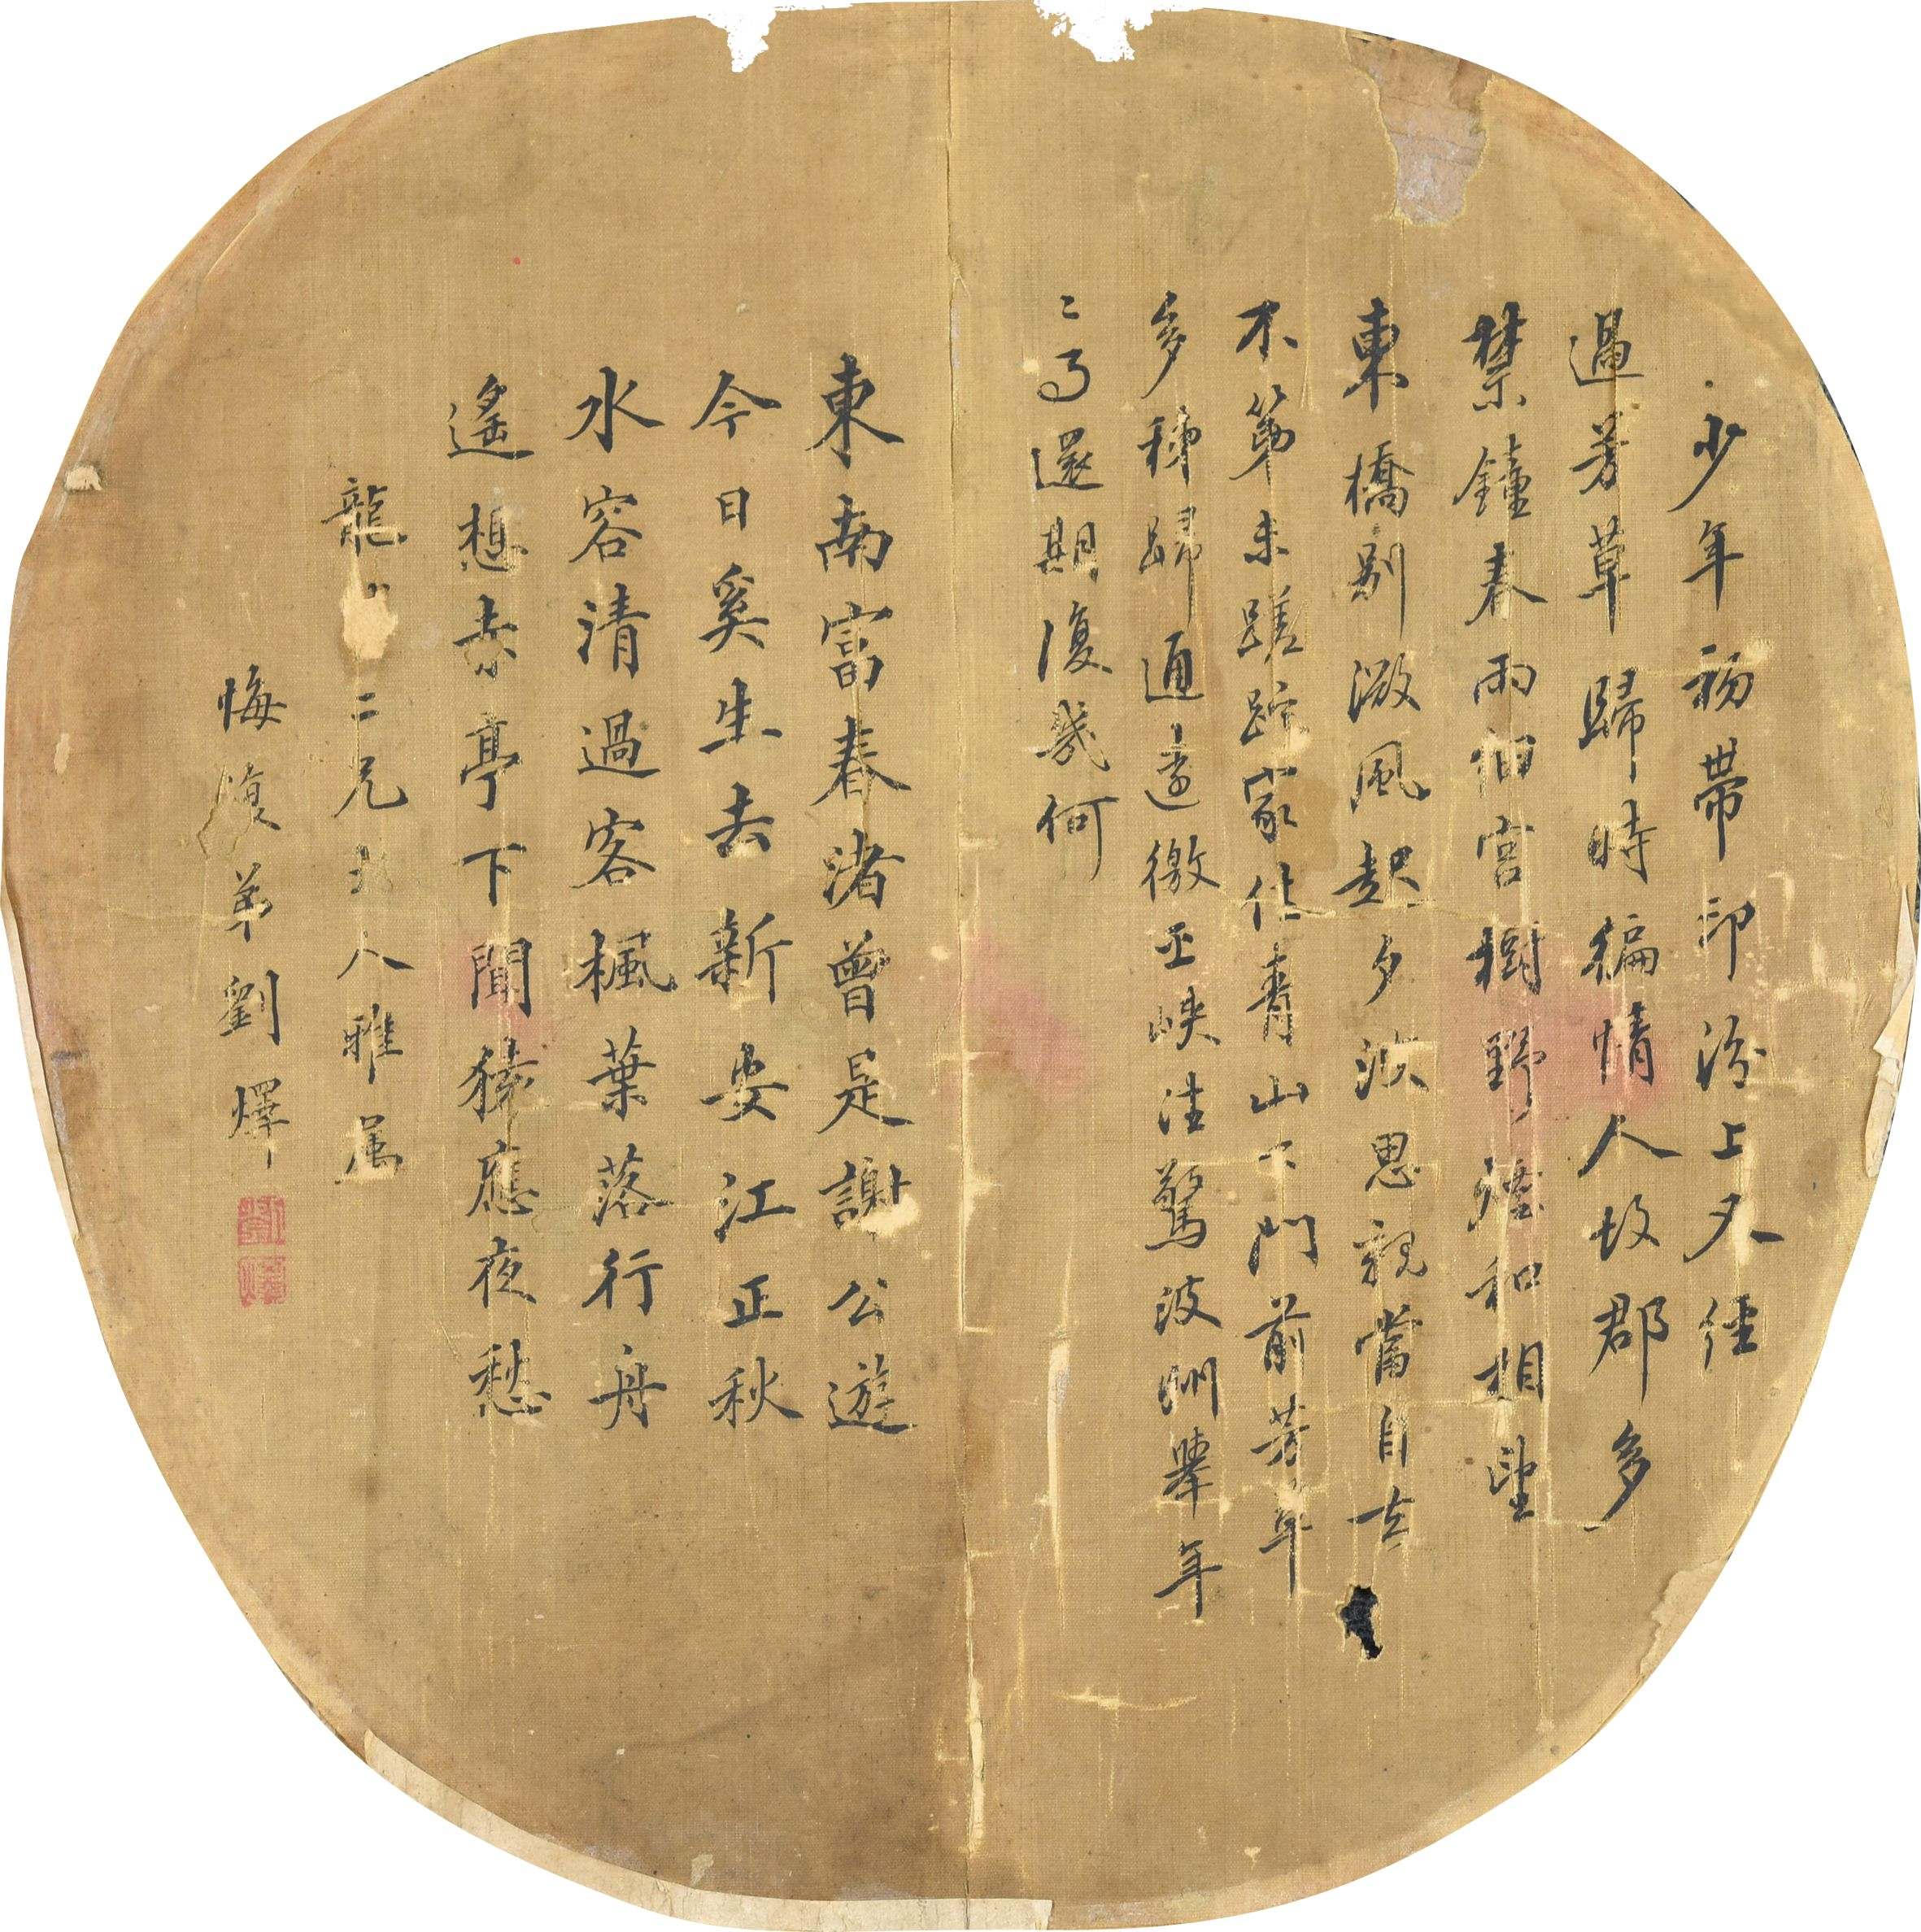 少年初帶印汾上又經
過芳草歸時徧情人故郡多
禁鐘春雨細宮樹野煙和相望
東橋別微風起夕波思親當自去
不第未蹉跎家住青山下門前芳草
多秭歸通遠徼巫峽注驚波洲舉年
〻事還期復幾何
東南富春渚曾是謝公遊
今日奚生去新安江正秋
水容清過客楓葉落行舟
遙想赤亭下聞猿應夜愁
龍二兄大人雅屬
悔復弟劉燡
劉燡